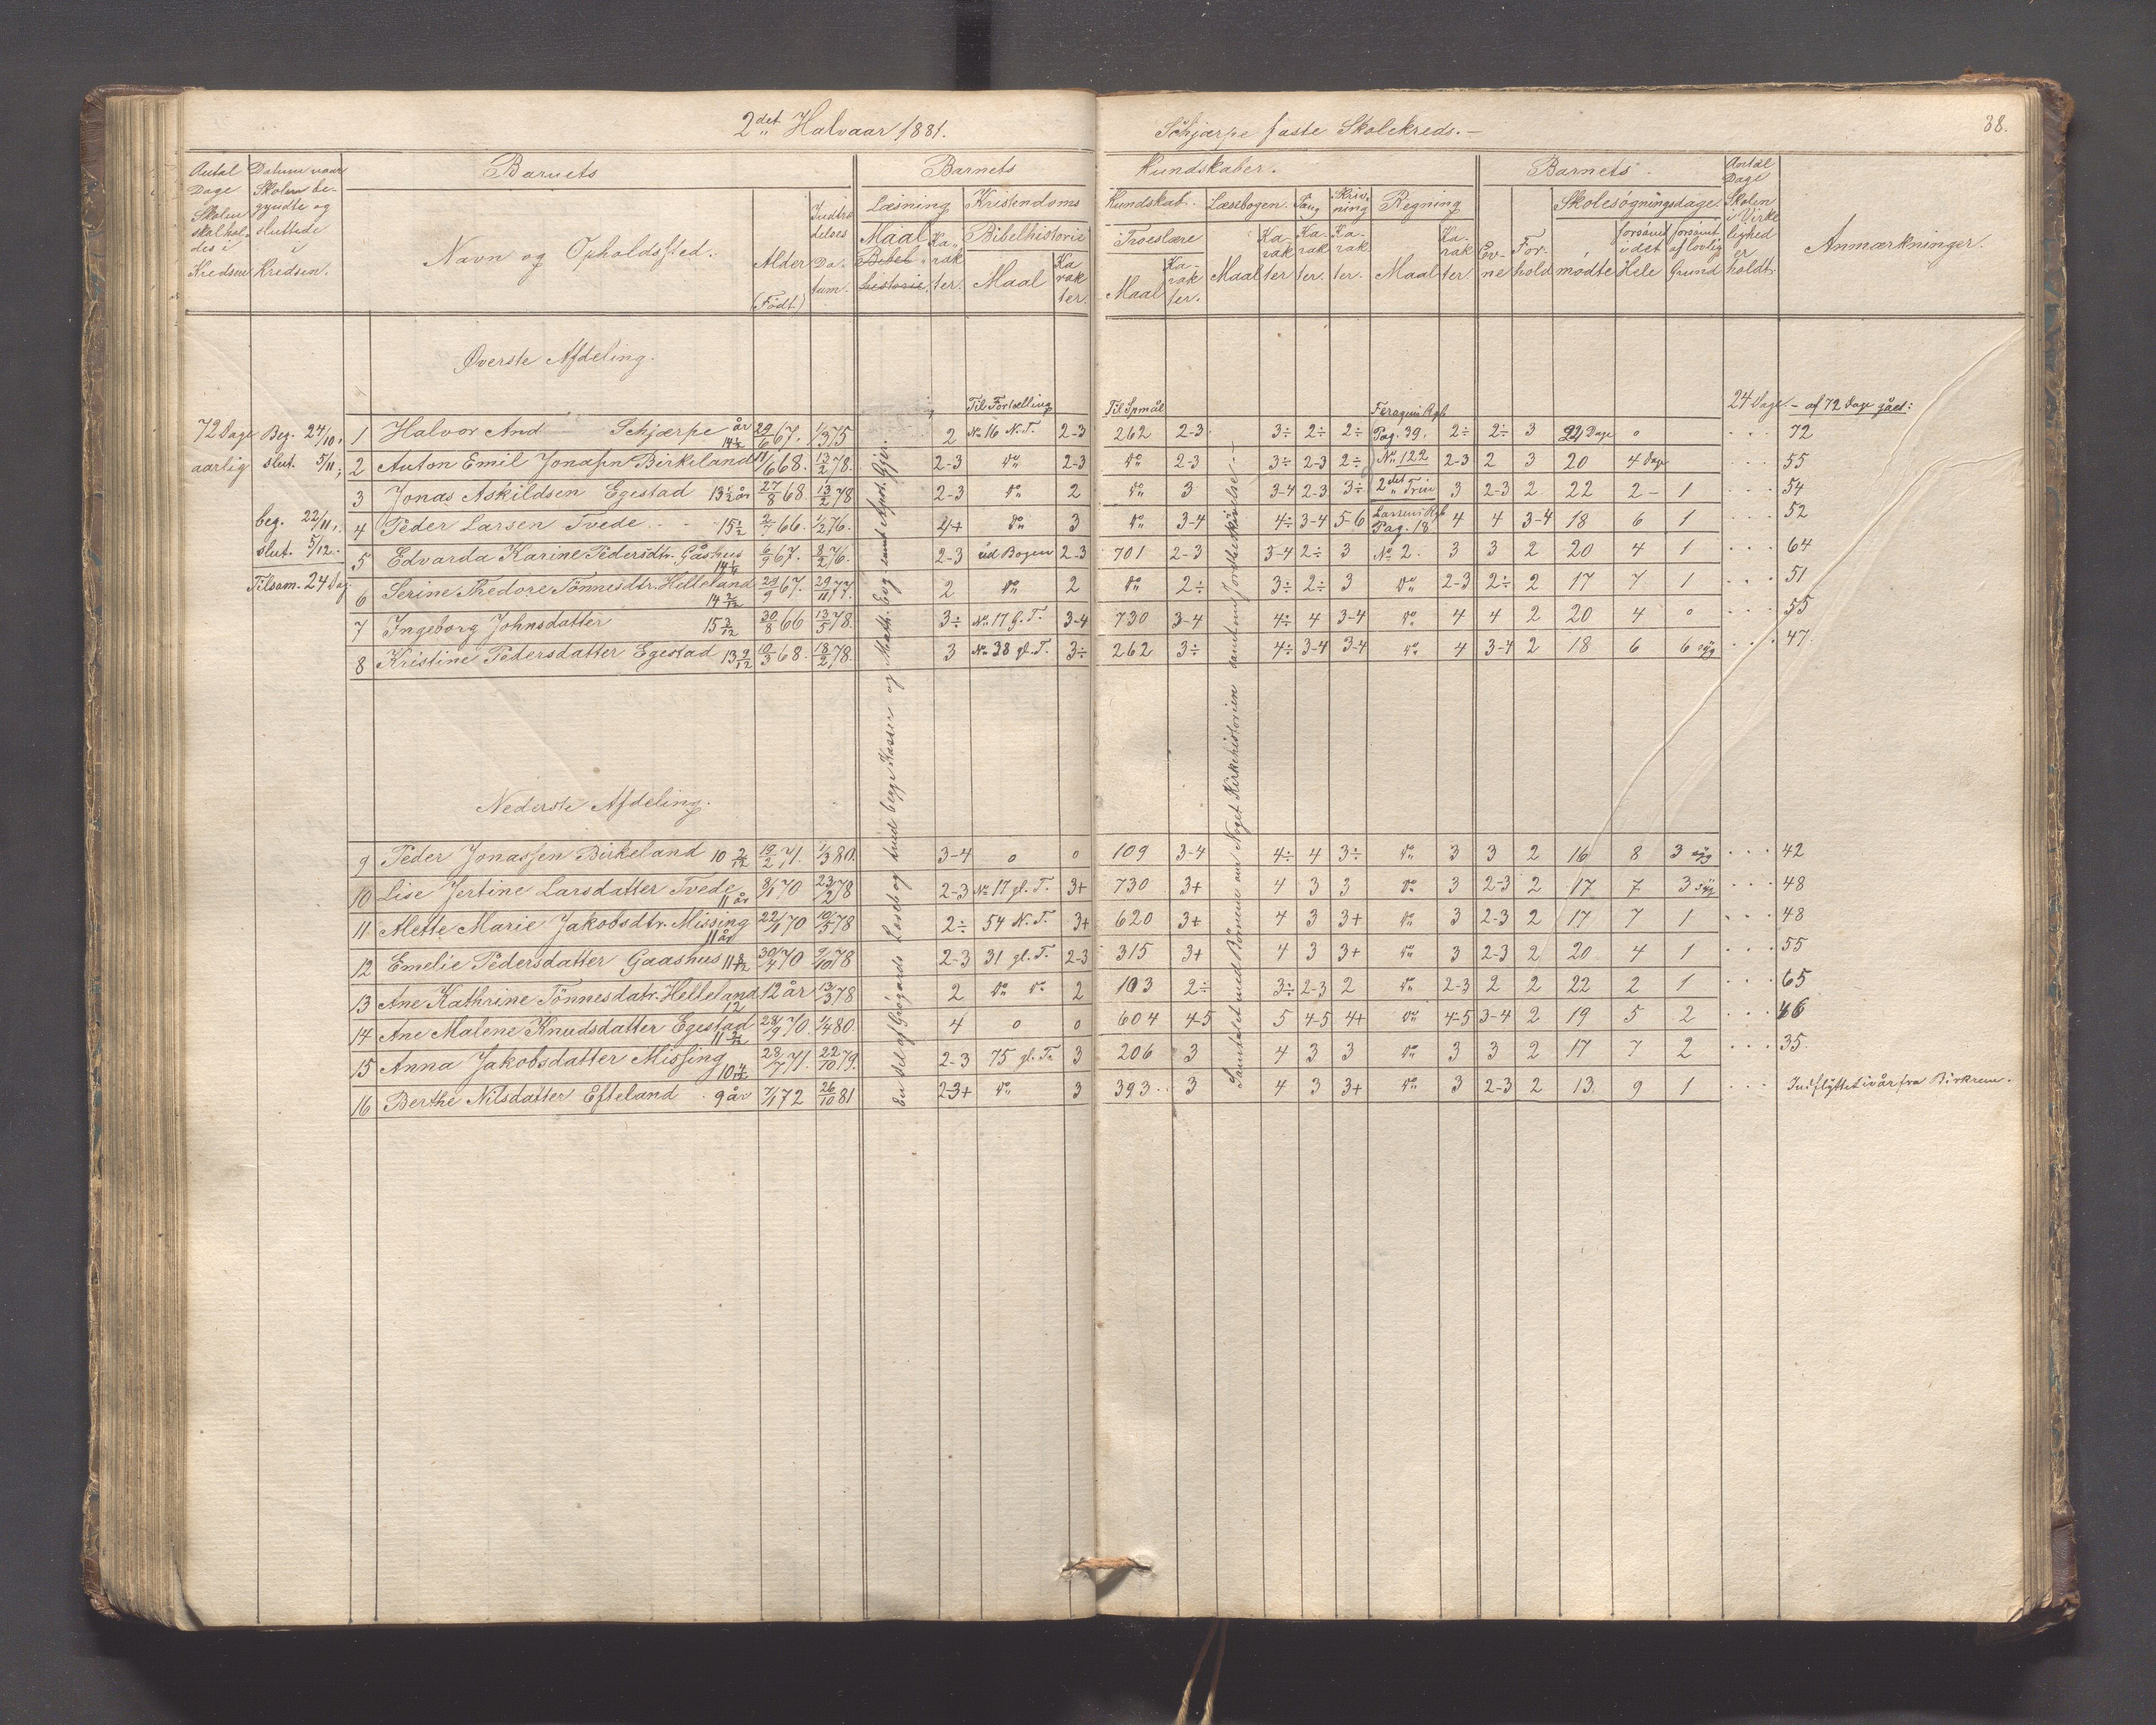 2det Halvaar 1881.
Schjærpe faste Skolekreds.—
38.
Antal Dage Skolen skal holdes i Kredsen
Datum naar Skolen begyndte og sluttede i Kredsen.
Barnets
Navn og Opholdssted.
Alder (Født)
Indtrædelses Datum.
Barnets
Kundskaber.
Læsning
Maal
Bibelhistorie.
Karakter.
Kristendoms
Kundskab.
Bibelhistorie
Maal
Karakter.
Troeslære
Maal
Karakter.
Læsebogen.
Maal
Karakter
Sang
Karakter.
Skrivning
Karakter.
Regning
Maal
Karakter.
Barnets
Evne
Forhold
Skolesøgningsdage.
mødte
forsømt i det Hele
forsømt af lovlig Grund
Antal Dage Skolen i Virkelighed er holdt.
Anmærkninger.
Øverste Afdeling.
Til Fortælling
Til Spmål
24 Dage – af 72 Dage gåed:
72 Dage aarlig
Beg. 24/10, slut. 5/11;
beg. 22/11, slut. 5/12.
Tilsam. 24 Dag
1 Halvor And — Schjærpe år 14½ 29/6 67. 1/3 75 2 No 16 N. T. 2-3 262 2-3 3÷ 2÷ 2÷ Pag. 39. 2÷ 2÷ 3 24 Dage 0 72
2 Anton Emil Jonasn Birkeland 11/6 68. 13/2 78. 2-3 do 2-3 do 2-3 3÷ 2-3 2÷ No 122 2-3 2 3 20 4 Dage 55
3 Jonas Askildsen Egestad 13½ år 27/8 68. 13/2 78 2-3 do 2 do 3 3-4 2-3 3÷ 2det Trin 3 2-3 2 22 2 – 1 54
4 Peder Larsen Tvede 15½ 2/7 66. 1/2 76. 4+ do 3 do 3-4 4÷ 3-4 5-6 Pag. 18 4 4 3-4 18 6 1 52
5 Edvarda Karine Pedersdtr. Gåshus 6/9 67. 8/2 76. 2-3 ud Bogen 2-3 701 2-3 3-4 2÷ 3 No 2. 3 3 2 20 4 1 64
6 Serine Thedore Tönnesdtr. Helleland 14 2/12 29/9 67. 29/11 77. 2 do 2 do 2÷ 3÷ 2÷ 3 do 2-3 2÷ 2 17 7 1 51
7 Ingeborg Johnsdatter 15 3/12 30/8 66 13/5 78. 3÷ No 17 G. T. 3-4 730 3-4 4÷ 4 3-4 do 4 4 2 20 4 0 55
8 Kristine Pedersdatter Egestad 13 9/12 10/3 68. 18/2 78. 3 No 38 gl. T. 3÷ 262 3÷ 4÷ 3-4 3-4 do 4 3-4 2 18 6 6 syg 47.
Nederste Afdeling.
9 Peder Jonassen Birkeland 10 9/12 19/2 71. 1/3 80. 3-4 0 0 109 3-4 4÷ 4 3÷ do 3 3 2 16 8 3 syg 42
10 Lise Jertine Larsdatter Tvede 11 år 8/11 70 23/2 78 2-3 No 17 gl. T. 3+ 730 3+ 4 3 3 do 3 2-3 2 17 7 3 syg 48
11 Mette Marie Jakobsdtr. Missing 11 år 22/11 70 10/5 78 2÷ 54 N. T. 3+ 620 3+ 4 3 3+ do 3 2-3 2 17 7 1 48
12 Emelie Pedersdatter Gaashus 11 8/12 30/4 70 9/10 78 2-3 31 gl. T. 2-3 315 3+ 4 3 3+ do 3 2-3 2 20 4 1 55
13 Ane Kathrine Tönnesdatr. Helleland 12 år 13/3 78 2 do do 2 103 2÷ 3÷ 2-3 2 do 2-3 2 2 22 2 1 65
14 Ane Malene Knudsdatter Egestad 11 2/12 28/9 70. 1/4 80. 4 0 0 604 4-5 5 4-5 4+ do 4-5 3-4 2 19 5 2 46
15 Anna Jakobsdatter Missing 10 4/12 28/7 71. 22/10 79. 2-3 75 gl. Te 3 206 3 4 3 3 do 3 3 2 17 7 2 35.
16 Berthe Nilsdatter Efteland 9 år 7/11 72 26/10 81 2-3+ do 3 393 3 4 3 3+ do 3 2-3 2 13 9 1 Indflyttet i år fra Birkrem.